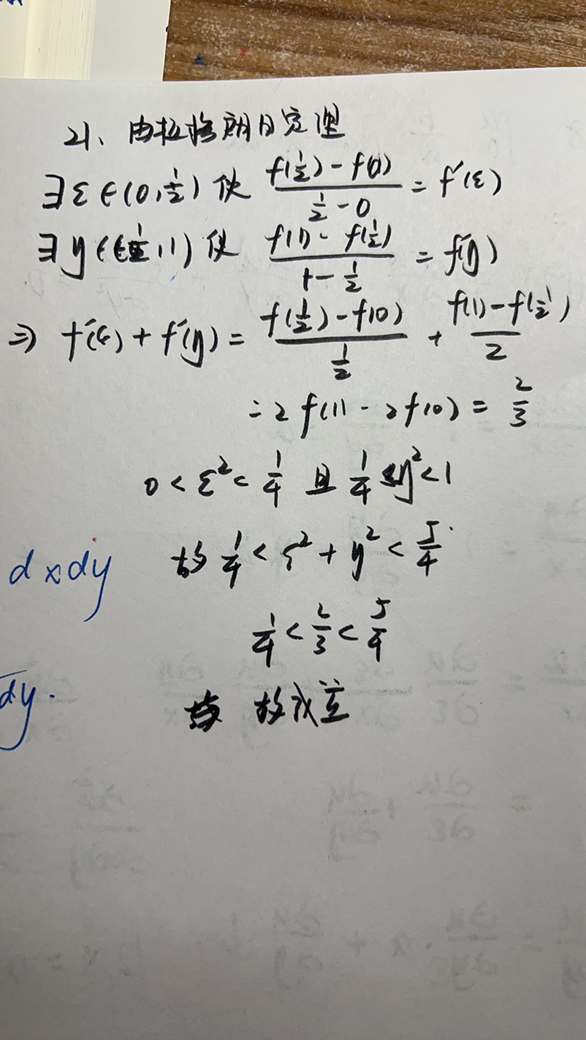 21、由拉格朗日定理
∃ε∈(0,½) 使 (f(½)-f(0))/(½-0) = f'(ε)
∃y∈(½,1) 使 (f(1)-f(½))/(1-½) = f'(y)
⇒ f'(ε)+f'(y) = (f(½)-f(0))/(½) + (f(1)-f(½))/2
= 2f(1)-2f(0) = 2/3
0<ε²<1/4 且 1/4<y²<1
dxdy
故 1/4<ε²+y²<5/4
1/4<2/3<5/4
dy.
故成立